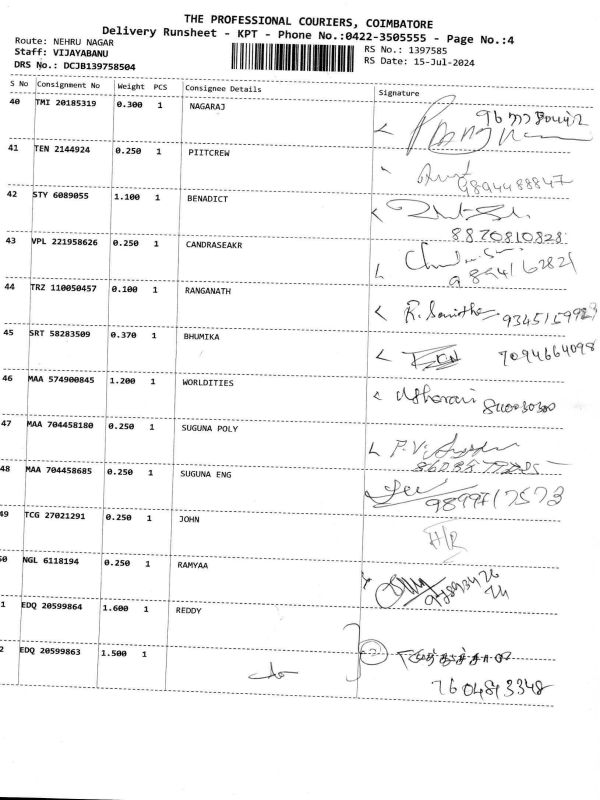 THE PROFESSIONAL COURIERS, COIMBATORE
Delivery Runsheet - KPT - Phone No.:0422-3505555 - Page No.:4
Route: NEHRU NAGAR
Staff: VIJAYABANU
DRS No.: DCJB139758504
RS No.: 1397585
RS Date: 15-Jul-2024
S No Consignment No Weight PCS Consignee Details Signature
40 TMI 20185319 0.300 1 NAGARAJ
41 TEN 2144924 0.250 1 PIITCREW
9894488847
42 STY 6089055 1.100 1 BENADICT
8870810828
43 VPL 221958626 0.250 1 CANDRASEAKR
44 TRZ 110050457 0.100 1 RANGANATH
45 SRT 58283509 0.370 1 BHUMIKA
7094664098
46 MAA 574900845 1.200 1 WORLDITIES
47 MAA 704458180 0.250 1 SUGUNA POLY
48 MAA 704458685 0.250 1 SUGUNA ENG
49 TCG 27021291 0.250 1 JOHN
H/R
50 NGL 6118194 0.250 1 RAMYAA
1 EDQ 20599864 1.600 1 REDDY
2 EDQ 20599863 1.500 1
do
2
7604813348